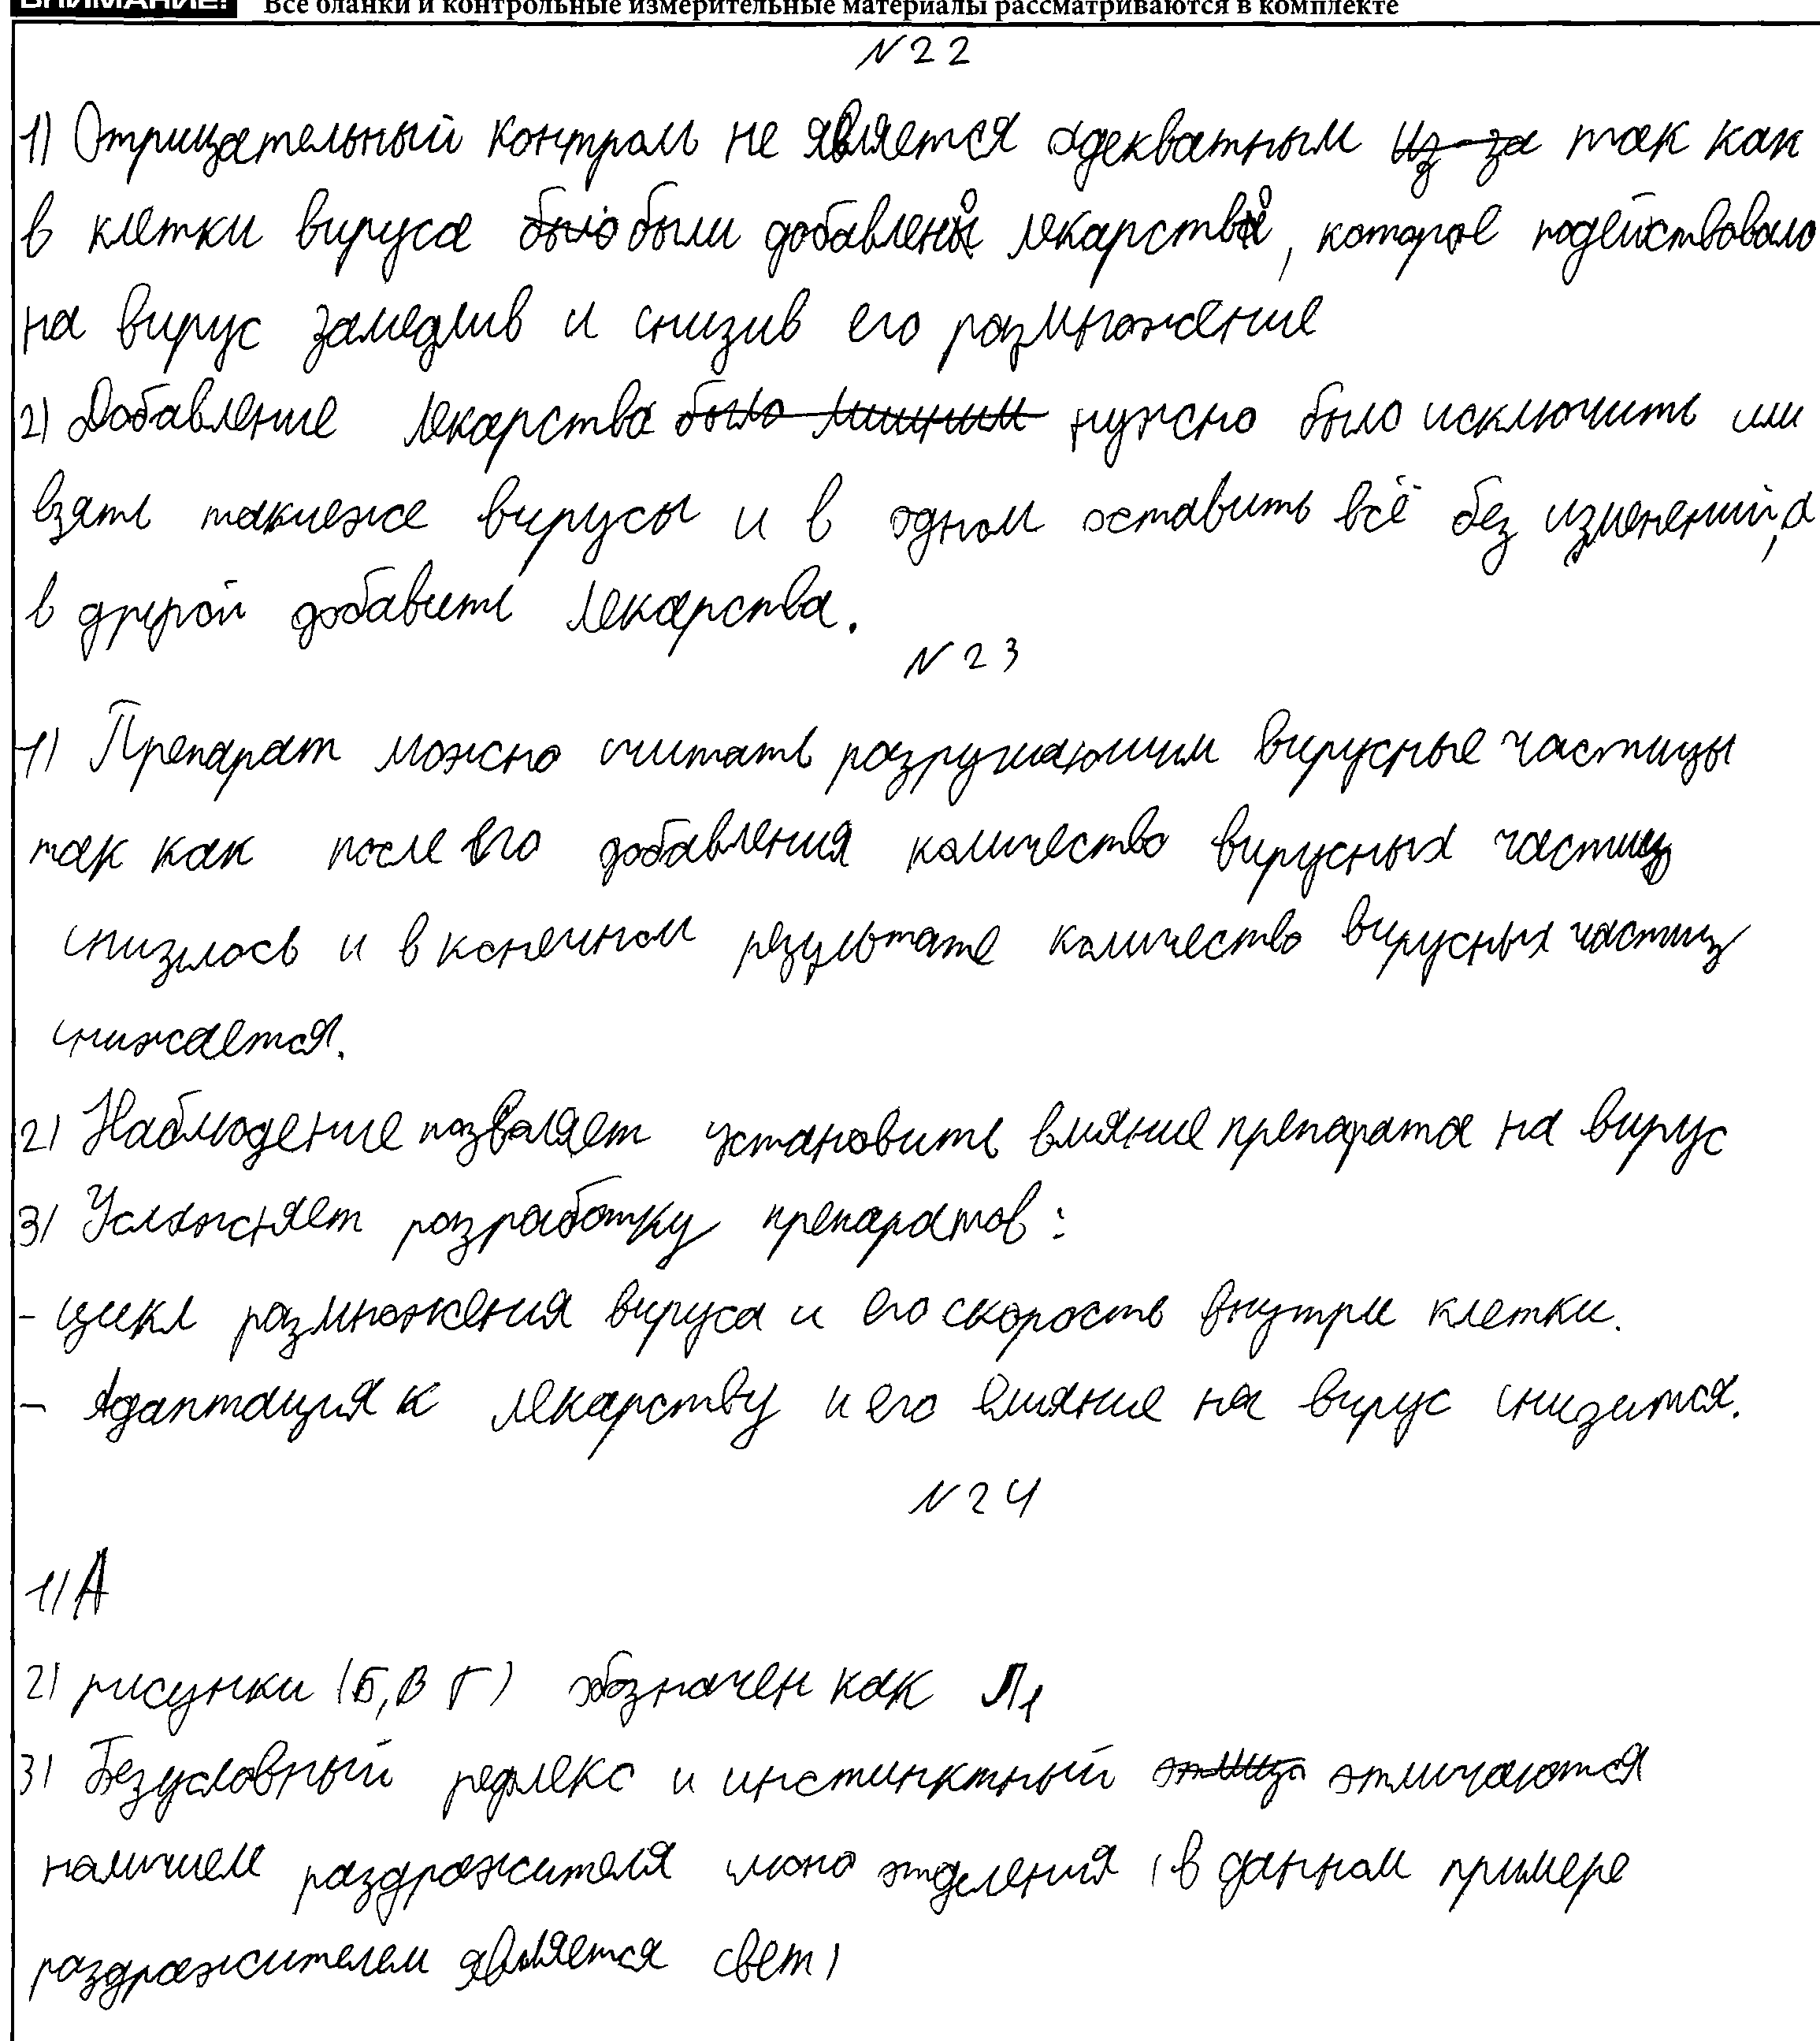 ВНИМАНИЕ! Все бланки и контрольные измерительные материалы рассматриваются в комплекте
N22
1) Отрицательный контроль не является адекватным из-за так как
в клетки вируса было были добавлено лекарство, которое подействовало
на вирус замедлив и снизив его размножение
2) Добавление лекарства было нужно было исключить или
взять такиеже вирусы и в одном оставить всё без изменений, а
в другой добавить лекарства.
N23
1) Препарат можно считать разрушающим вирусные частицы
так как после его добавления количество вирусных частиц
снизилось и в конечном результате количество вирусных частиц
снижается.
2) Наблюдение позволяет установить влияние препарата на вирус
3) Усложняет разработку препаратов:
- цикл размножения вируса и его скорость внутри клетки.
- Адаптация к лекарству и его влияние на вирус снизится.
N24
1) А
2) рисунки (Б, В Г) обозначен как Л1
3) Безусловный рефлекс и инстинктный отличаются
наличием раздражителя слюно отделения (в данном примере
раздражителем является свет)